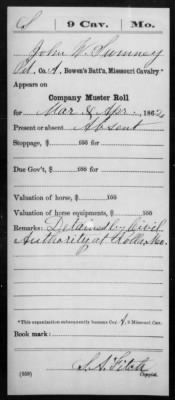 S | 9 Cav. | Mo.
John W. Sumney
Pvt., Co. A, Bowen's Batt'n, Missouri Cavalry*
Appears on
Company Muster Roll
for Mar & Apr., 1862
Present or absent Absent
Stoppage, $ 100 for
Due Gov't, $ 100 for
Valuation of horse, $ 100
Valuation of horse equipments, $ 100
Remarks: Detained by Civil
Authority at Rolla Mo.
*This organization subsequently became Co. A, 9 Missouri Cav.
Book mark:
(359)
Copyist.